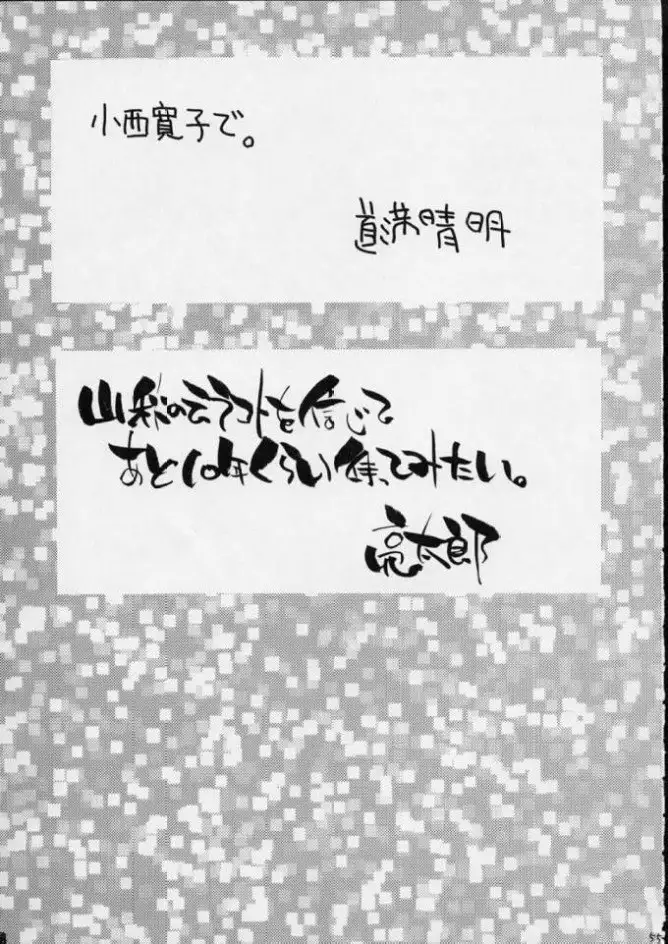 小西寛子で。
道満晴明
山梨の云うコトを信じて
あと10年くらい待ってみたい。
亮太郎